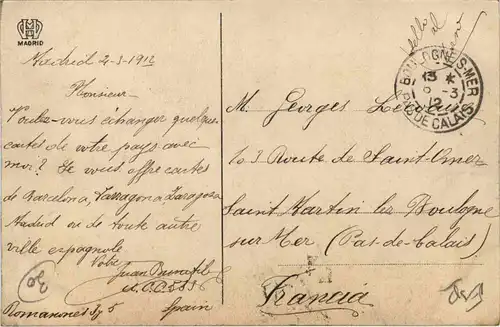 MADRID
Madrid 2-3-1912
Monsieur
Voulez-vous échanger quelques
cartes de votre pays avec
moi? Je vous offre cartes
de Barcelona, Tarragona, Zaragoza
Madrid ou de toute autre
ville espagnole
Votre
Juan
U.C.C. 5836
Romanones 3y5 Spain
BOULOGNE-S-MER
13 *
8 -3
12
PAS DE CALAIS
M. Georges
103 Route de Saint-Omer
Saint Martin les Boulogne
sur Mer (Pas-de-Calais)
Francia